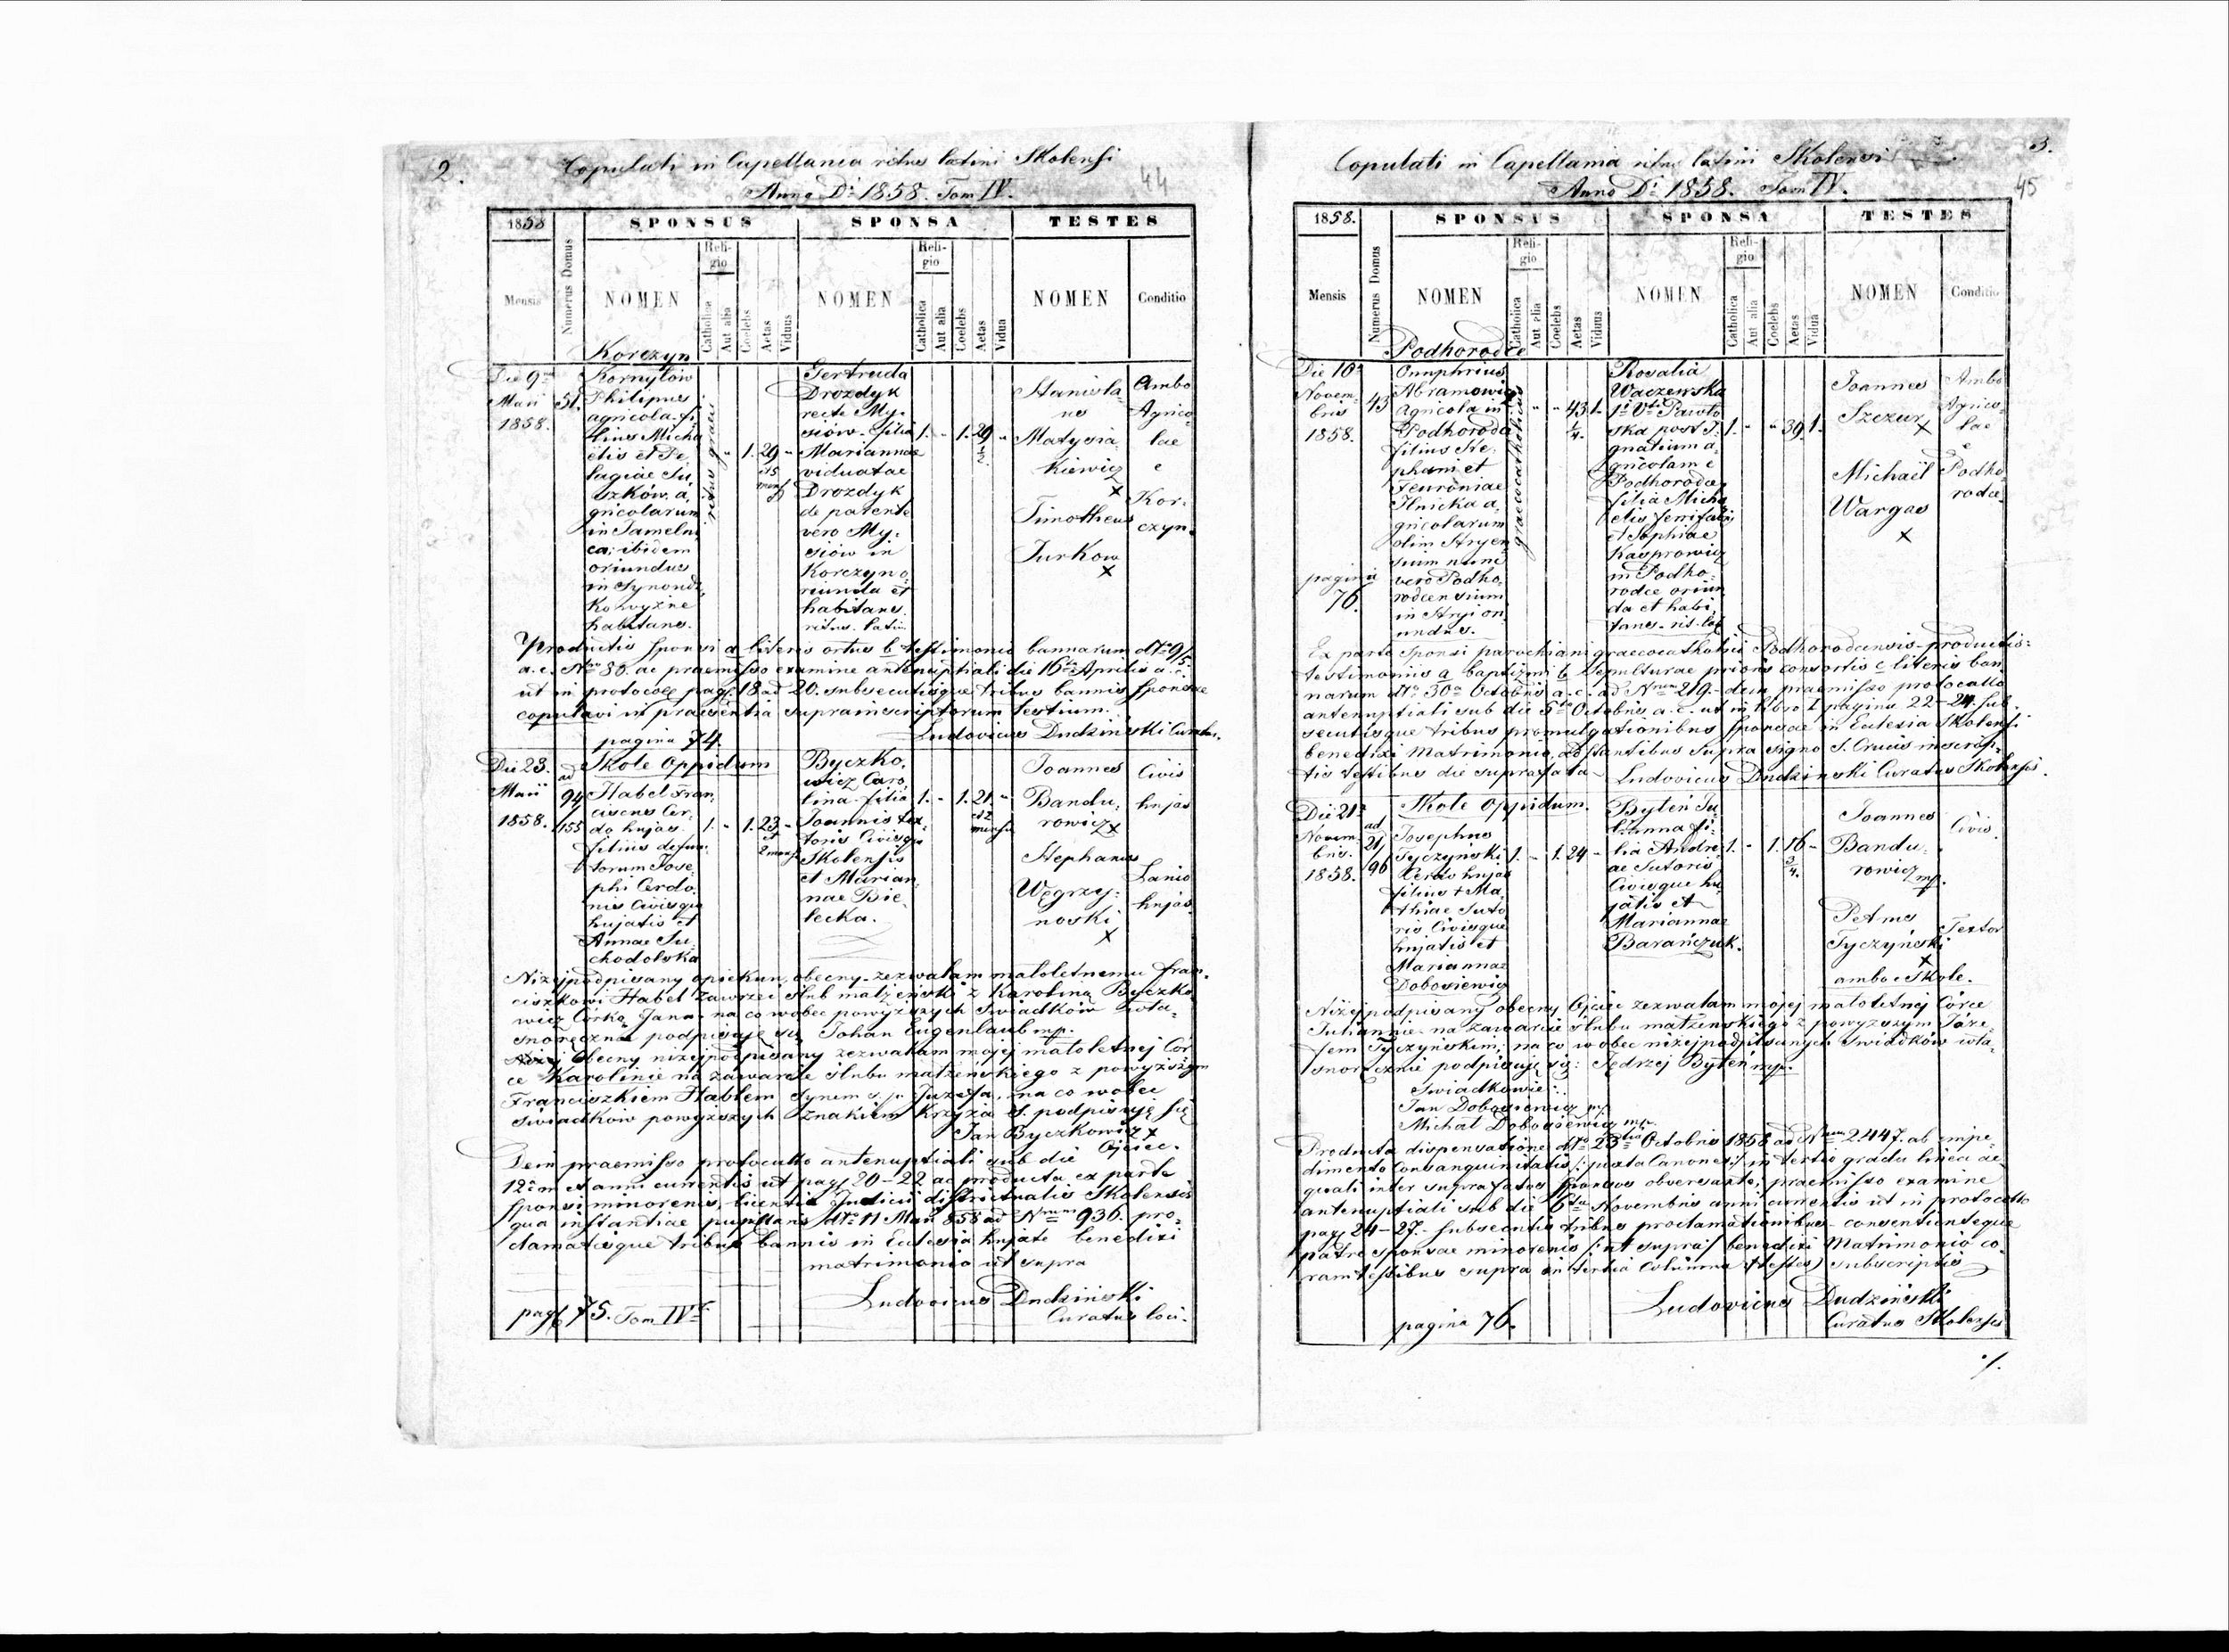 2.
Copulati in Capellania ritus latini Skolensi
44
Anno D: 1858. Tom IV.
1858
SPONSUS
SPONSA
TESTES
Mensis
Numerus Domus
NOMEN
Religio
Catholica
Aut alia
Coelebs
Aetas
Viduus
NOMEN
Religio
Catholica
Aut alia
Coelebs
Aetas
Vidua
NOMEN
Conditio
Korczyn
Die 9
Maii
1858.
51.
Kornyłow
Philipus
agricola fi
lius Micha
elis et Pe
lagiae Ju
szków a
gricolarum
in Tamelni
ca: ibidem
oriundus
in Synowdz
ko wyżne
habitans.
ritus graeci
1. 29
Gertruda
Drozdyk
recte My
siów. filia
Mariannae
viduatae
Drozdyk
de parente
vero My
siów in
Korczyn o
riunda et
habitans.
ritus latin
1. - 1. 29 -
Stanisla
us
Matysia
kiewicz
x
Timotheus
Jurkow
x
Ambo
Agrico
lae
e
Kor
czyn.
Productis sponsi a literis ortus b testimonio bannorum dto 9/5
a. c. Nro 80. ac praemisso examine antenuptiali die 16ta Aprilis a. c.
ut in protocoll pag. 18 ad 20. subsecutisque tribus bannis sponsae
copulavi in praesentia suprainscriptorum testium.
pagina 74.
Ludovicus Dudziński Curatus.
Die 23.
Maii
1858.
ad
94
155
Skole Oppidum
Habel Fran
ciscus Cer
do hujas
filius defun
torum Jose
phi Cerdo
nis Civisque
hujatis et
Annae Su
chodolska
1. - 1. 23 -
et
2 mens
Byczko
wicz Caro
lina filia
Joannis tex
toris Civisque
Skolensis
et Marian
nae Bie
lecka.
1. - 1. 21. -
Joannes
Bandu
rowicz x
Stephanus
Węgrzy
noski
x
Civis
hujas
Lanio
hujas.
Niżej podpisany opiekun, obecny zezwalam małoletnemu Fran
ciszkowi Habel zawrzeć ślub małżeński z Karoliną Byczko
wicz Córką Jana na co wobec powyższych Świadków wła
snoręcznie podpisuje się Johan Eugenlaub mp.
obecny niżej podpisany zezwalam mojej małoletnej Cór
ce Karolinie na zawarcie ślubu małżeńskiego z powyższym
Franciszkiem Hablem synem ś. p. Józefa, na co wobec
Świadków powyższych znakiem Krzyża S. podpisuję się
Jan Byczkowicz x
Ojciec.
Dein praemisso protocollo antenuptiali sub die
12 em et anni currentis ut pag. 20-22 ac producta ex parte
sponsi minorenis, licentia Judicii districtualis Skolensis
qua instantiae pupillaris dto 11 Maii 858 ad Nrum 936. pro
clamatisque tribus bannis in Eclesia hujate benedixi
matrimonio ut supra
pag 75. Tom IV
Ludovicus Dudziński
Curatus loci.
3.
Copulati in Capellania ritus latini Skolensi
45
Anno D: 1858. Tom IV.
1858.
SPONSUS
SPONSA
TESTES
Mensis
Numerus Domus
NOMEN
Religio
Catholica
Aut alia
Coelebs
Aetas
Viduus
NOMEN
Religio
Catholica
Aut alia
Coelebs
Aetas
Vidua
NOMEN
Conditio
Podhorodce
Die 10
Novem
bris
1858.
pagina
76.
43
Onuphrius
Abramowicz
Agricola in
Podhorodce
filius Ste
phani et
Feuroniae
Ilnicka a
gricolarum
olim Stryen
sium nunc
vero Podho
rodcensium
in Stryi ori
undus.
graeco catholicus
- - 43 1/4 1.
Rosalia
Waczewska
1i Vti Pawło
ska post I
gnatium a
gricolam e
Podhorodce
filia Micha
elis ferrifabri
et Sophiae
Kasprowicz
in Podho
rodce oriun
da et habi
tans rit. lat
1. - - 39 1.
Joannes
Szczur
x
Michaël
Wargas
x
Ambo
Agrico
lae
e
Podho
rodce.
Ex parte sponsi parochiani graecocatholici Podhorodcensis productis
testimoniis a baptizmi b sepulturae prioris consortis c literis ban
narum dto 30 Octobris a. c. ad Nrum 219. dein praemisso protocollo
antenuptiali sub die 5 Octobris a. c. ut in libro I pagina 22-24. sub
secutisque tribus promulgationibus sponsae in Eclesia Skolensi
benedixi Matrimonio, adstantibus supra signo S. Crucis inscrip
tis testibus die suprafata Ludovicus Dudzinski Curatus Skolensis.
Die 21
Novem
bris.
1858.
ad
21/
96
Skole Oppidum.
Josephus
Tyczyński
Cerdo hujas
filius + Ma
thiae Suto
ris Civisque
hujatis et
Mariannae
Dobosiewicz
1. - 1. 24 -
Byteń Ju
lianna fi
lia Andre
ae Sutoris
Civisque hu
jatis et
Mariannae
Barańczuk.
1. - 1. 16 -
2/4.
Joannes
Bandu
rowicz
mp.
Petrus
Tyczyński
x
ambo e Skole.
Civis
Textor
Niżej podpisany obecny Ojciec zezwalam mojej małoletnej Córce
Juliannie na zawarcie ślubu małżenskiego z powyższym Józe
fem Tyczyńskim, na co wobec niżej podpisanych Świadków wła
snoręcznie podpisuję się: Jędrzej Byteń mp.
Świadkowie:
Jan Dobosiewicz mp
Michał Dobosiewicz mp.
Producta dispensatione dto 23 Octobris 1858 ad Nrum 2447. ab impe
dimento Consanguinitatis (: juxta Canones:) in tertio gradu linea ae
quali inter suprafatos sponsos obversante, praemisso examine
antenuptiali sub die 6ta Novembris anni currentis ut in protocollo
pag 24-27. subsecutis tribus proclamationibus consentienteque
patre sponsae minorenis (: ut supra) benedixi Matrimonio co
ram testibus supra in tertia Columna (testes) subscriptis
pagina 76.
Ludovicus Dudziński
Curatus Skolensis
./.